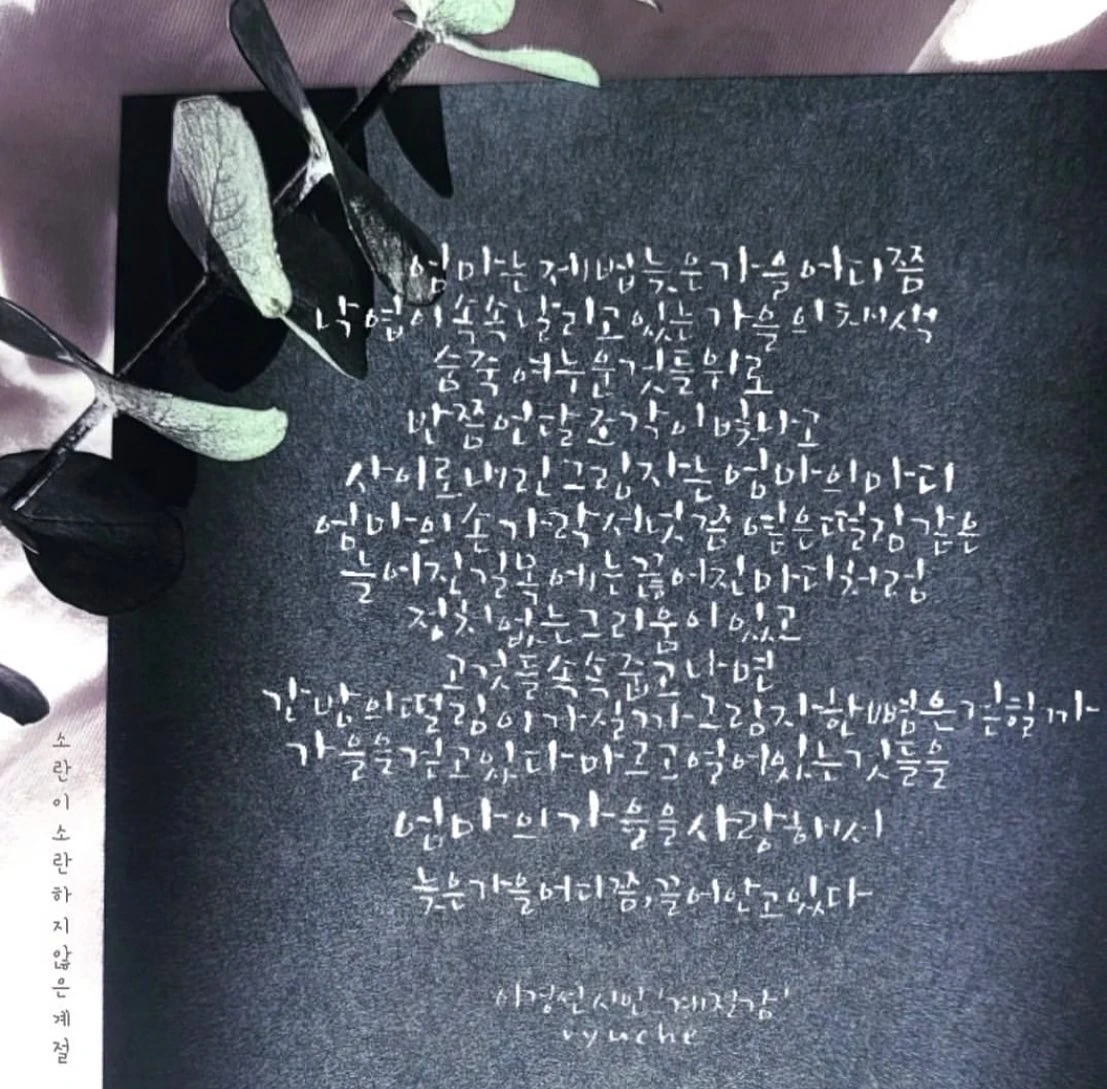 엄마는 제법 늦은 가을 어디쯤
낙엽이 속속 날리고 있는 가을의 채색
숨죽여 누운 것들 위로
반쯤 언 달 조각이 빛나고
사이로 내린 그림자는 엄마의 마디
엄마의 손가락 서넛쯤 옅은 떨림 같은
늘어진 길목에는 끊어진 마디처럼
정처 없는 그리움이 있고
고것들 속속 줍고 나면
간밤의 떨림이 가실까 그림자 한 뼘은 걷힐까
가을을 걷고 있다 마르고 열어있는 것들을
엄마의 가을을 사랑해서
늦은 가을 어디쯤, 끌어안고 있다
이경선 시인 '계절감'
vyuche
소란이 소란하지 않은 계절